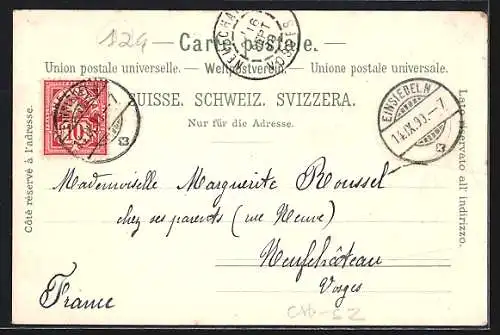 129
Carte postale.
Union postale universelle. — Weltpostverein. — Unione postale universale.
SUISSE. SCHWEIZ. SVIZZERA.
Nur für die Adresse.
Côté réservé à l'adresse.
Lato riservato all' indirizzo.
10
EINSIEDELN
14.IX.99.-7
Mademoiselle Marguerite Roussel
chez ses parents (rue Neuve)
Neufchâteau
Vosges
France
CH-SZ